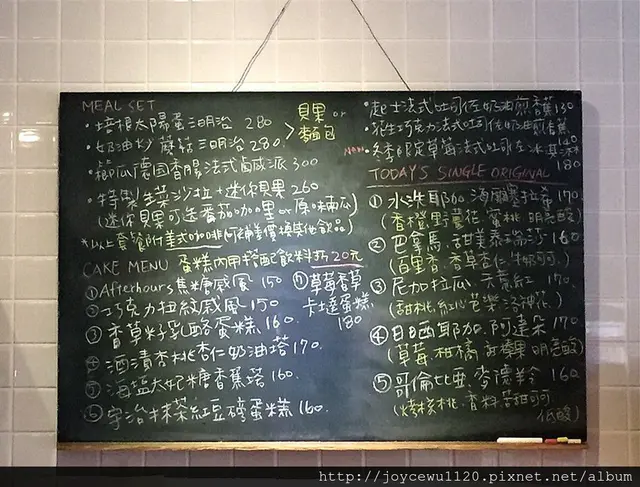 MEAL SET
・培根太陽蛋三明治 280
・奶油炒蘑菇三明治 280
> 貝果 or 麵包
・櫛瓜德國香腸法式鹹派 300
・特製生菜沙拉+迷你貝果 260
(迷你貝果可送番茄咖哩 or 原味
*以上套餐附美式咖啡可補差價換其他飲品)
CAKE MENU 蛋糕內用搭配飲料折20元
①Afterhours焦糖戚風 150
②巧克力扭紋戚風 150
③香草籽乳酪蛋糕 160
④酒漬杏桃杏仁奶油塔 170
⑤海鹽太妃糖香蕉塔 160
⑥宇治抹茶紅豆磅蛋糕 160
⑦草莓香草卡士達蛋糕 180
・起士法式吐司佐奶油煎香蕉 130
・花生巧克力法式吐司佐奶油煎香蕉 140
New ・冬季限定草莓法式吐司佐冰淇淋 180
TODAY'S SINGLE ORIGINAL
①水洗 耶加 170
(香橙 野薑花 蜜桃 明亮酸)
② 巴拿馬 160
(百里香 香草杏仁 牛奶可可)
③尼加拉瓜 170
(甜桃 紅心芭樂 洛神花)
④日曬 耶加 170
(草莓 柑橘 甜 明亮酸)
⑤哥倫比亞 160
(烤核桃 香料 苦甜可可 低酸)
http://joycewu1120.pixnet.net/album